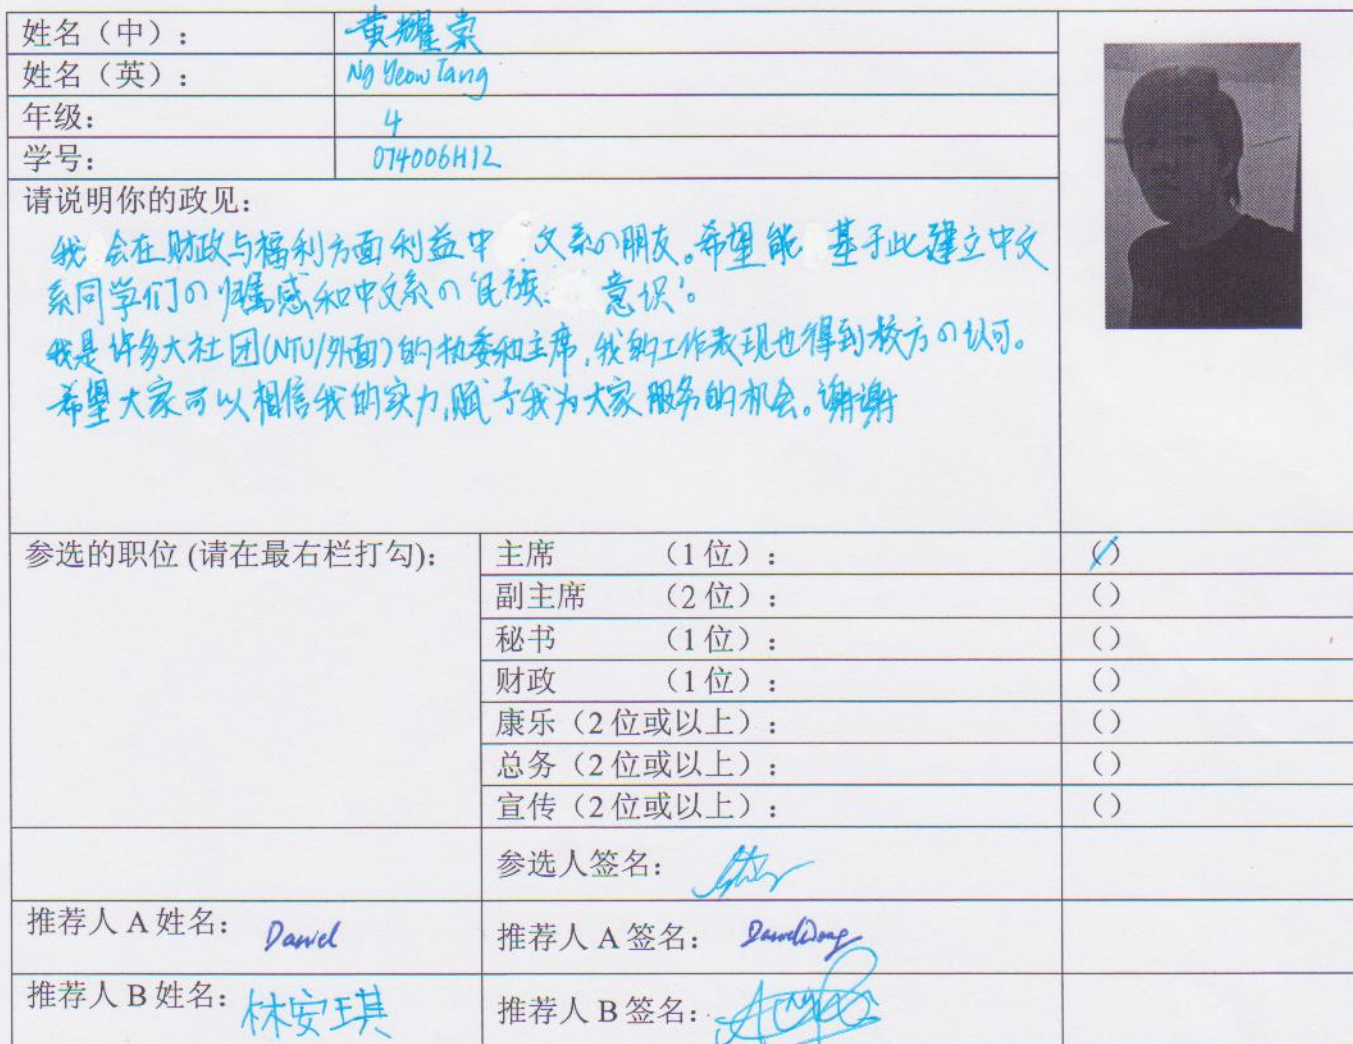 姓名（中）： 黄耀棠
姓名（英）： Ng Yeow Tang
年级： 4
学号： 074006H12
请说明你的政见：
我会在财政与福利方面利益中文系の朋友。希望能基于此建立中文
系同学们の归属感和中文系の‘民族意识’。
我是许多大社团(NTU/外面)的执委和主席，我的工作表现也得到校方の认可。
希望大家可以相信我的实力，赋予我为大家服务的机会。谢谢
参选的职位 (请在最右栏打勾)： 主席 （1 位）： (✓)
副主席 （2 位）： ()
秘书 （1 位）： ()
财政 （1 位）： ()
康乐（2 位或以上）： ()
总务（2 位或以上）： ()
宣传（2 位或以上）： ()
参选人签名：
推荐人 A 姓名： Daniel 推荐人 A 签名：
推荐人 B 姓名： 林安琪 推荐人 B 签名：